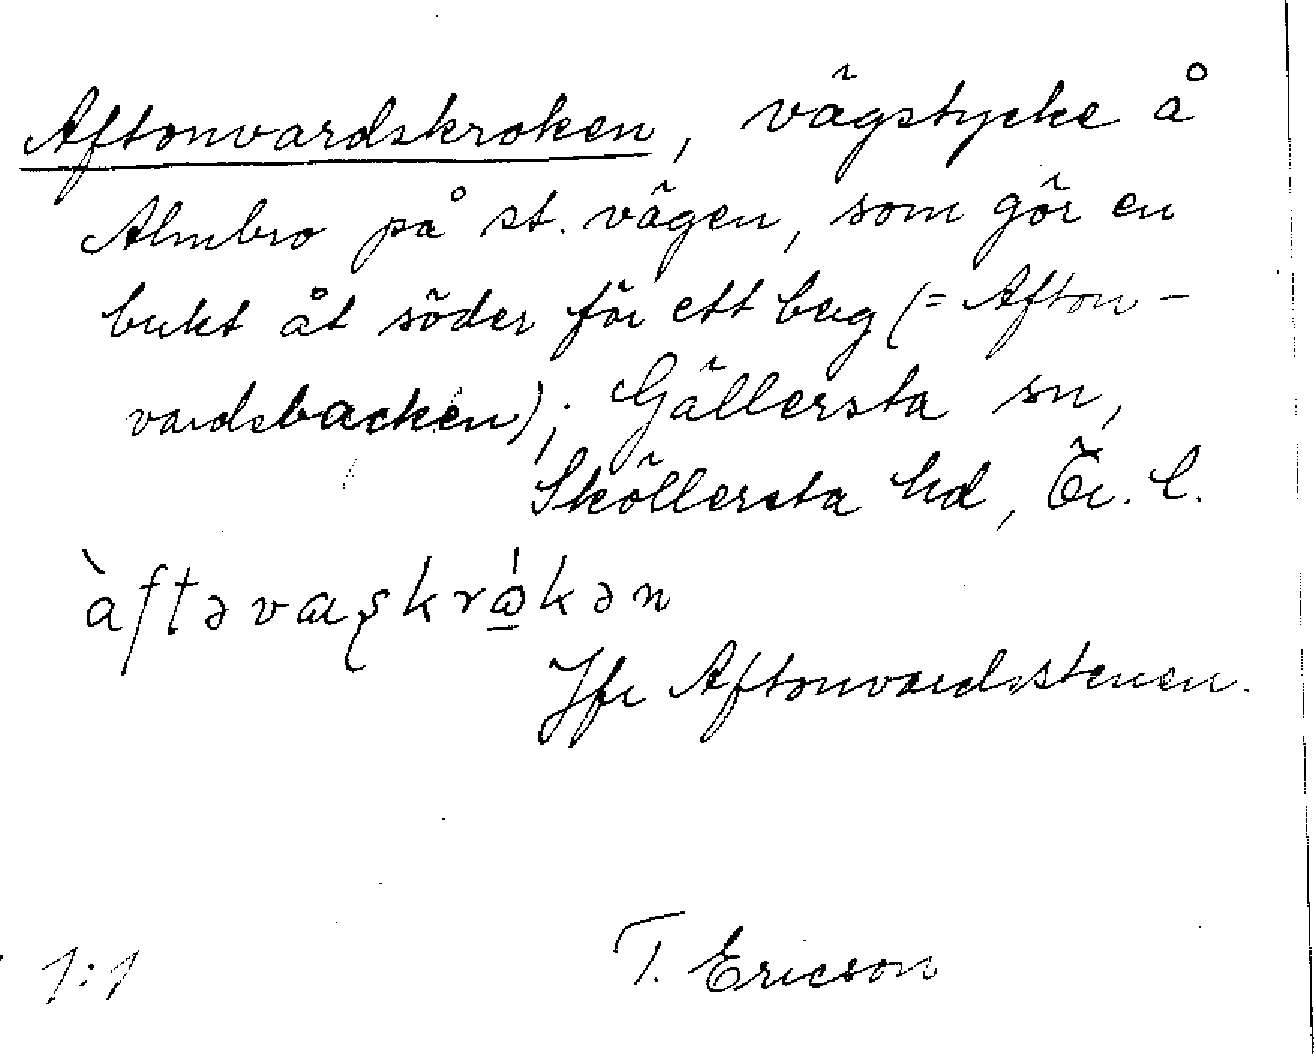 Aftonvardskroken, vägstycke å
Almbro på st. vägen, som gör en
bukt åt söder för ett berg (= Afton-
vardsbacken); Gällersta sn,
Sköllersta hd, Ör. l.
àftəvaʂkrώ̲kən
Jfr Aftonvardsstenen.
T. Ericson
1:1